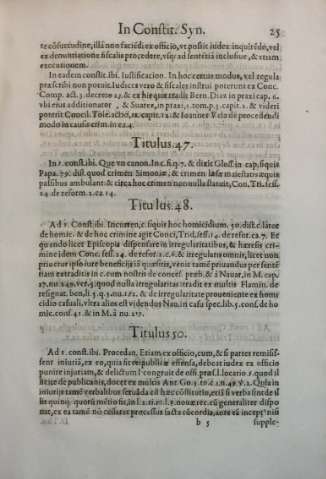 In Constit. Syn. 25
te cōsuetudine, illā non faciēdi ex officio, vt possit iudex inquirēdo, vel
ex denuntiatione fiscalis procedere, vsq; ad sententiā inclusiue, & etiam
executionem.
In eadem constit. ibi. Iustificacion. In hoc
præscribi non potest. Iudices vero & fiscales instrui poterunt ex Conc.
Comp. act. 3. decreto 25. & ex his quæ tradit Bern. Diaz in praxi cap. 6.
vbi eius additionator, & Suarez, in praxi, 1. tom. p. 3. capit. 2. & videri
poterit Concil. Tole. actio, 12. capit. 12. & Ioannes Velo de procedendi
modo in causis crim. in c. 24.
Titulus. 47.
In 1. constit. ibi. Que vn canon. Inc. si q. 7. & dixit Gloss. in cap. siquis
Papa. 79. dist. quod crimen Simoniæ, & crimen læsæ maiestatis æquis
passibus ambulant: & circa hoc crimen non nulla statuit, Con. Tri. sess.
24. de reform. 2. ca. 14.
Titulus. 48.
Ad 1. Constit. ibi. Incurren, c. siquis hoc homicidium. 50. dist. c. latore
de homic. & de hoc crimine agit Conci. Trid. sess. 14. de refor. ca. 7. Et
quando licet Episcopis dispensare in irregularitatibus, & hæresis cri-
mine idem Conc. sess. 24. de refor. 2. c. 6. & irregularis omnis, licet non
priuetur ipso iure beneficijs iā quæsitis, venit tamē priuandus per sentē
tiam ex traditis in c. cum nostris de conces. preb. & à Nauar, in M. cap.
27. nu. 249. ver. 5. quod nulla irregularitas tradit ex multis Flamin. de
resignat. ben. li. 5. q. 5. nu. 112. & de irregularitate proueniente ex homi
cidio casuali, vltra alias est videndus Nau. in casu spec. lib. 5. cons. de ho-
mic. cons. 41. & in M. à nu. 217.
Titulus 50.
Ad 1. const. ibi. Procedan. Etiam ex officio, cum, & si partes remisis-
sent iniuriā, ex eo, quia sit reipublicæ offensa, debeat iudex ex officio
punire iniuriam, & delictum l. congruit de offi. præs. l. locatio. §. quod il
licite de publicanis, docet ex multis Ant. Go. 3. to. c. 2. n. 49. v. 1. Quia in
iniurijs tamē verbalibus
lit quinq; quorū mētio fit, in l. 2. ti. 10. l. 5. nouæ rec. eū generaliter dispo
nat, ex ea tamē nō collatet processus facta cōcordia, ante eū incept nisi
b 5 supple-